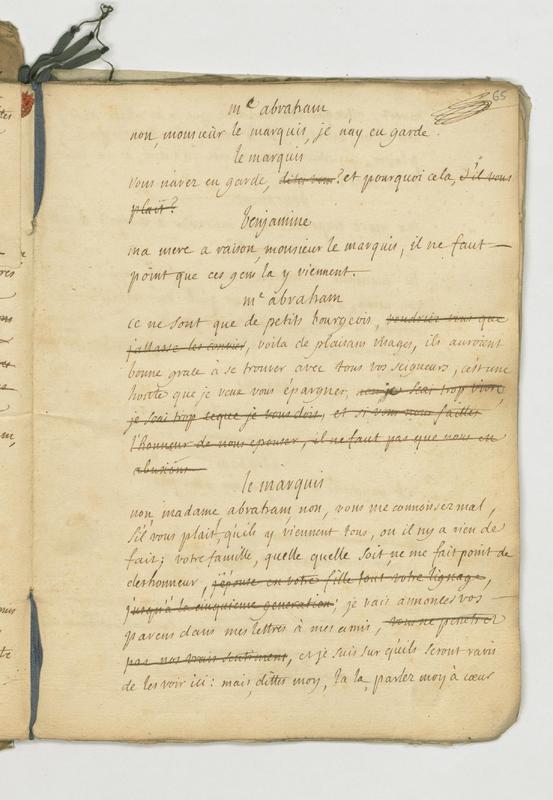 65
me abraham
non, monsieur le marquis, je n'ay en garde.
le marquis
vous navez en garde, dites vous? et pourquoi cela, s'il vous
plait?
benjamine
ma mere a raison, monsieur le marquis, il ne faut
point que ces gens la y viennent.
me abraham
ce ne sont que de petits bourgeois, voudriez vous que
j'allasse les convier, voila de plaisans visages, ils auroient
bonne grace à se trouver avec tous vos seigneurs, c'est une
honte que je veux vous épargner, je scai trop vivre,
je scai trop ceque je vous dois, et si vous nous faittes
l'honneur de nous epouser, il ne faut pas que nous en
abusions
le marquis
non madame abraham non, vous me connoissez mal,
s'il vous plait, qu'ils y viennent tous, ou il n'y a rien de
fait; votre famille, quelle quelle soit, ne me fait point de
deshonneur, j'épouse en votre fille tout votre lignage,
jusqu'à la cinquieme generation; je vais annoncer vos
parens dans mes lettres à mes amis, vous ne penetrez
pas nos vrais sentiment, et je suis sur qu'ils seront ravis
de les voir ici: mais, dittes moy, la la, parlez moy à cœur